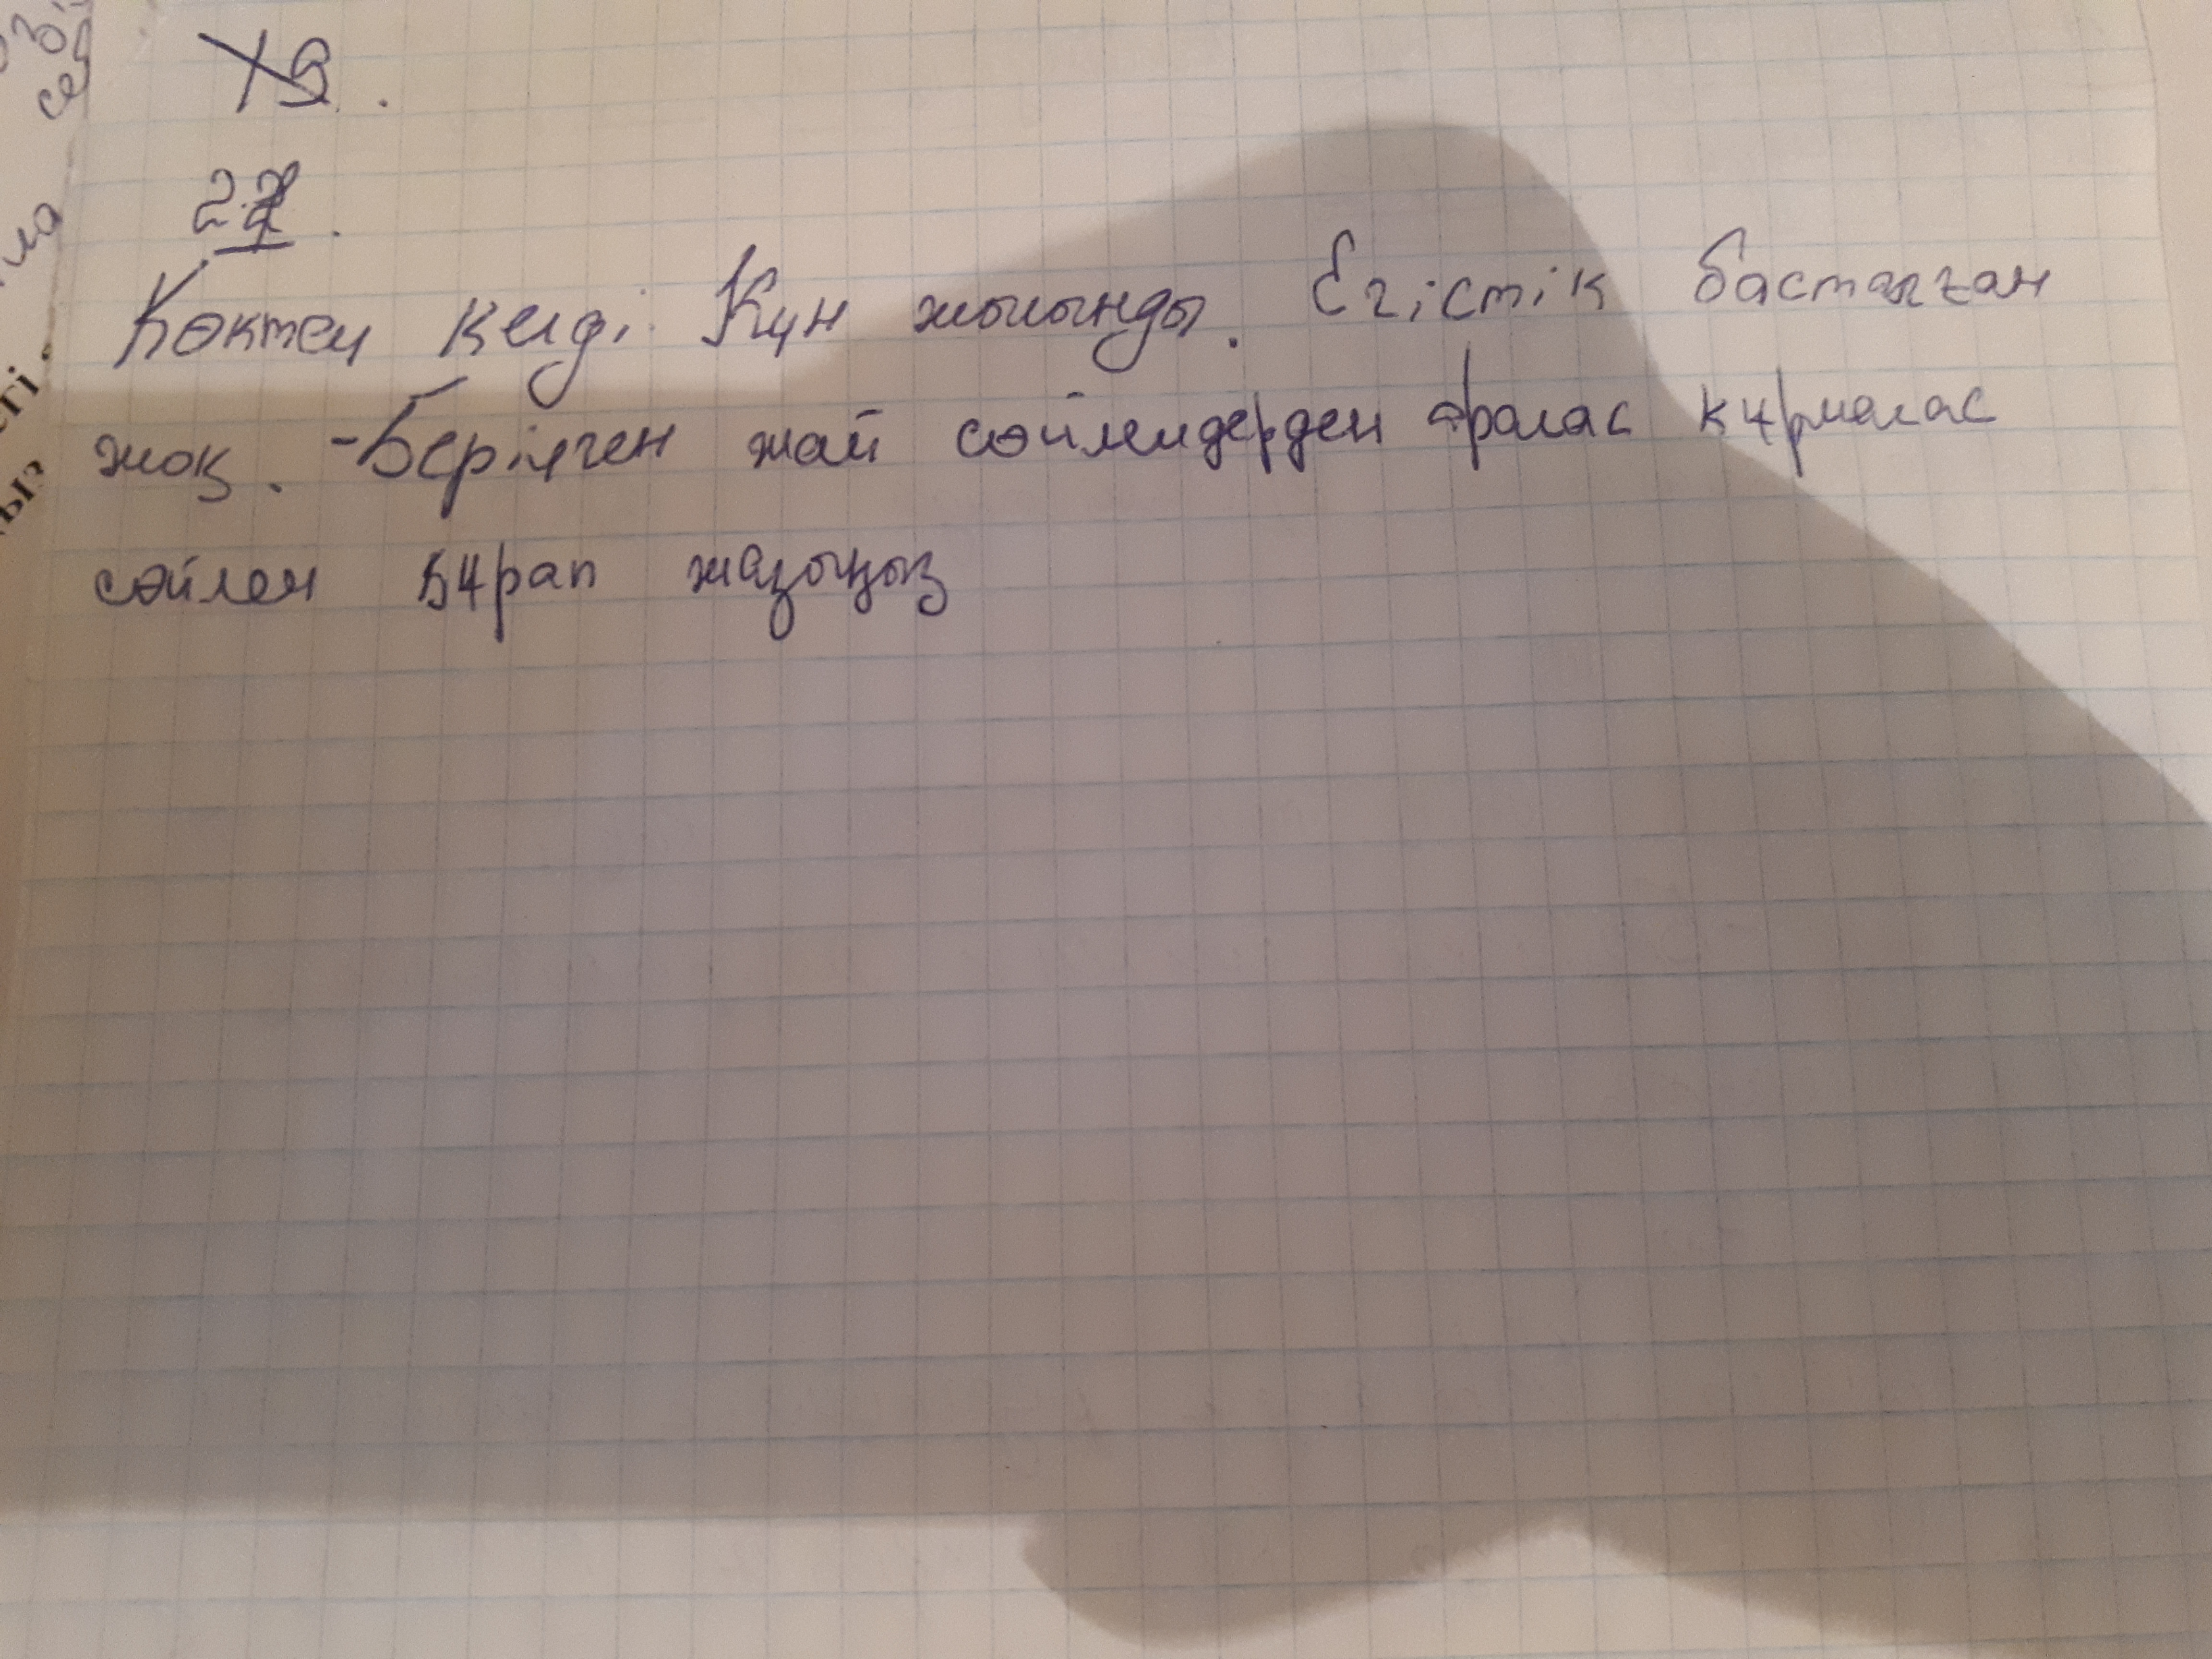 22.
Көктем келді. Күн жылынды. Егістік басталған
жоқ. - Берілген жай сөйлемдерден аралас құрмалас
сөйлем құрап жазыңыз